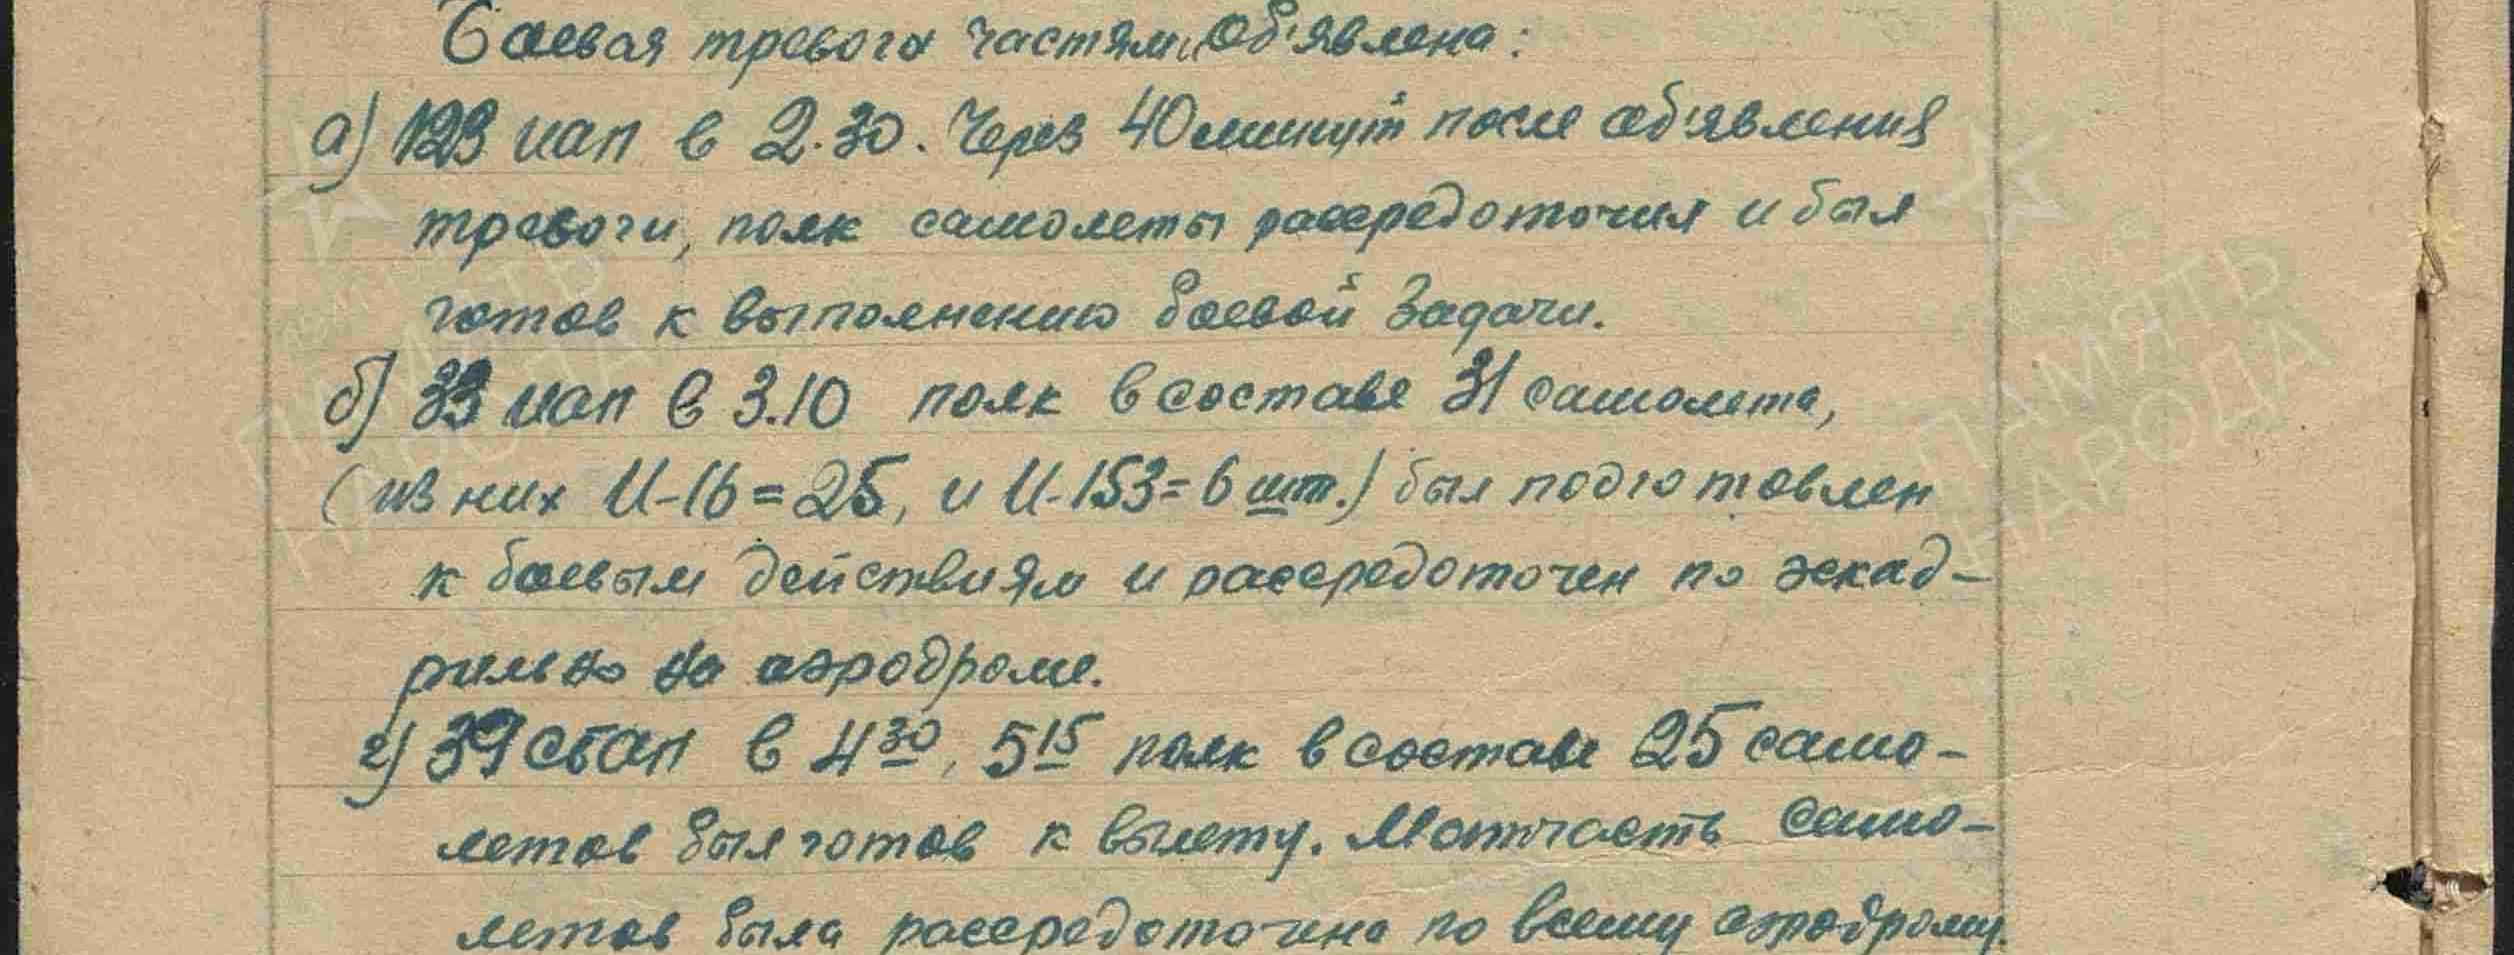 Боевая тревога частям об'явлена:
а) 123 иап в 2.30. Через 40 минут после об'явления
тревоги, полк самолеты рассредоточил и был
готов к выполнению боевой задачи.
б) 33 иап в 3.10 полк в составе 31 самолета,
(из них И-16=25, и И-153=6 шт.) был подготовлен
к боевым действиям и рассредоточен по эскад-
рильно на аэродроме.
г) 39 сбап в 4 30, 5 15 полк в составе 25 само-
летов был готов к вылету. Матчасть само-
летов была рассредоточена по всему аэродрому.
ПАМЯТЬ
НАРОДА
ПАМЯТЬ
НАРОДА